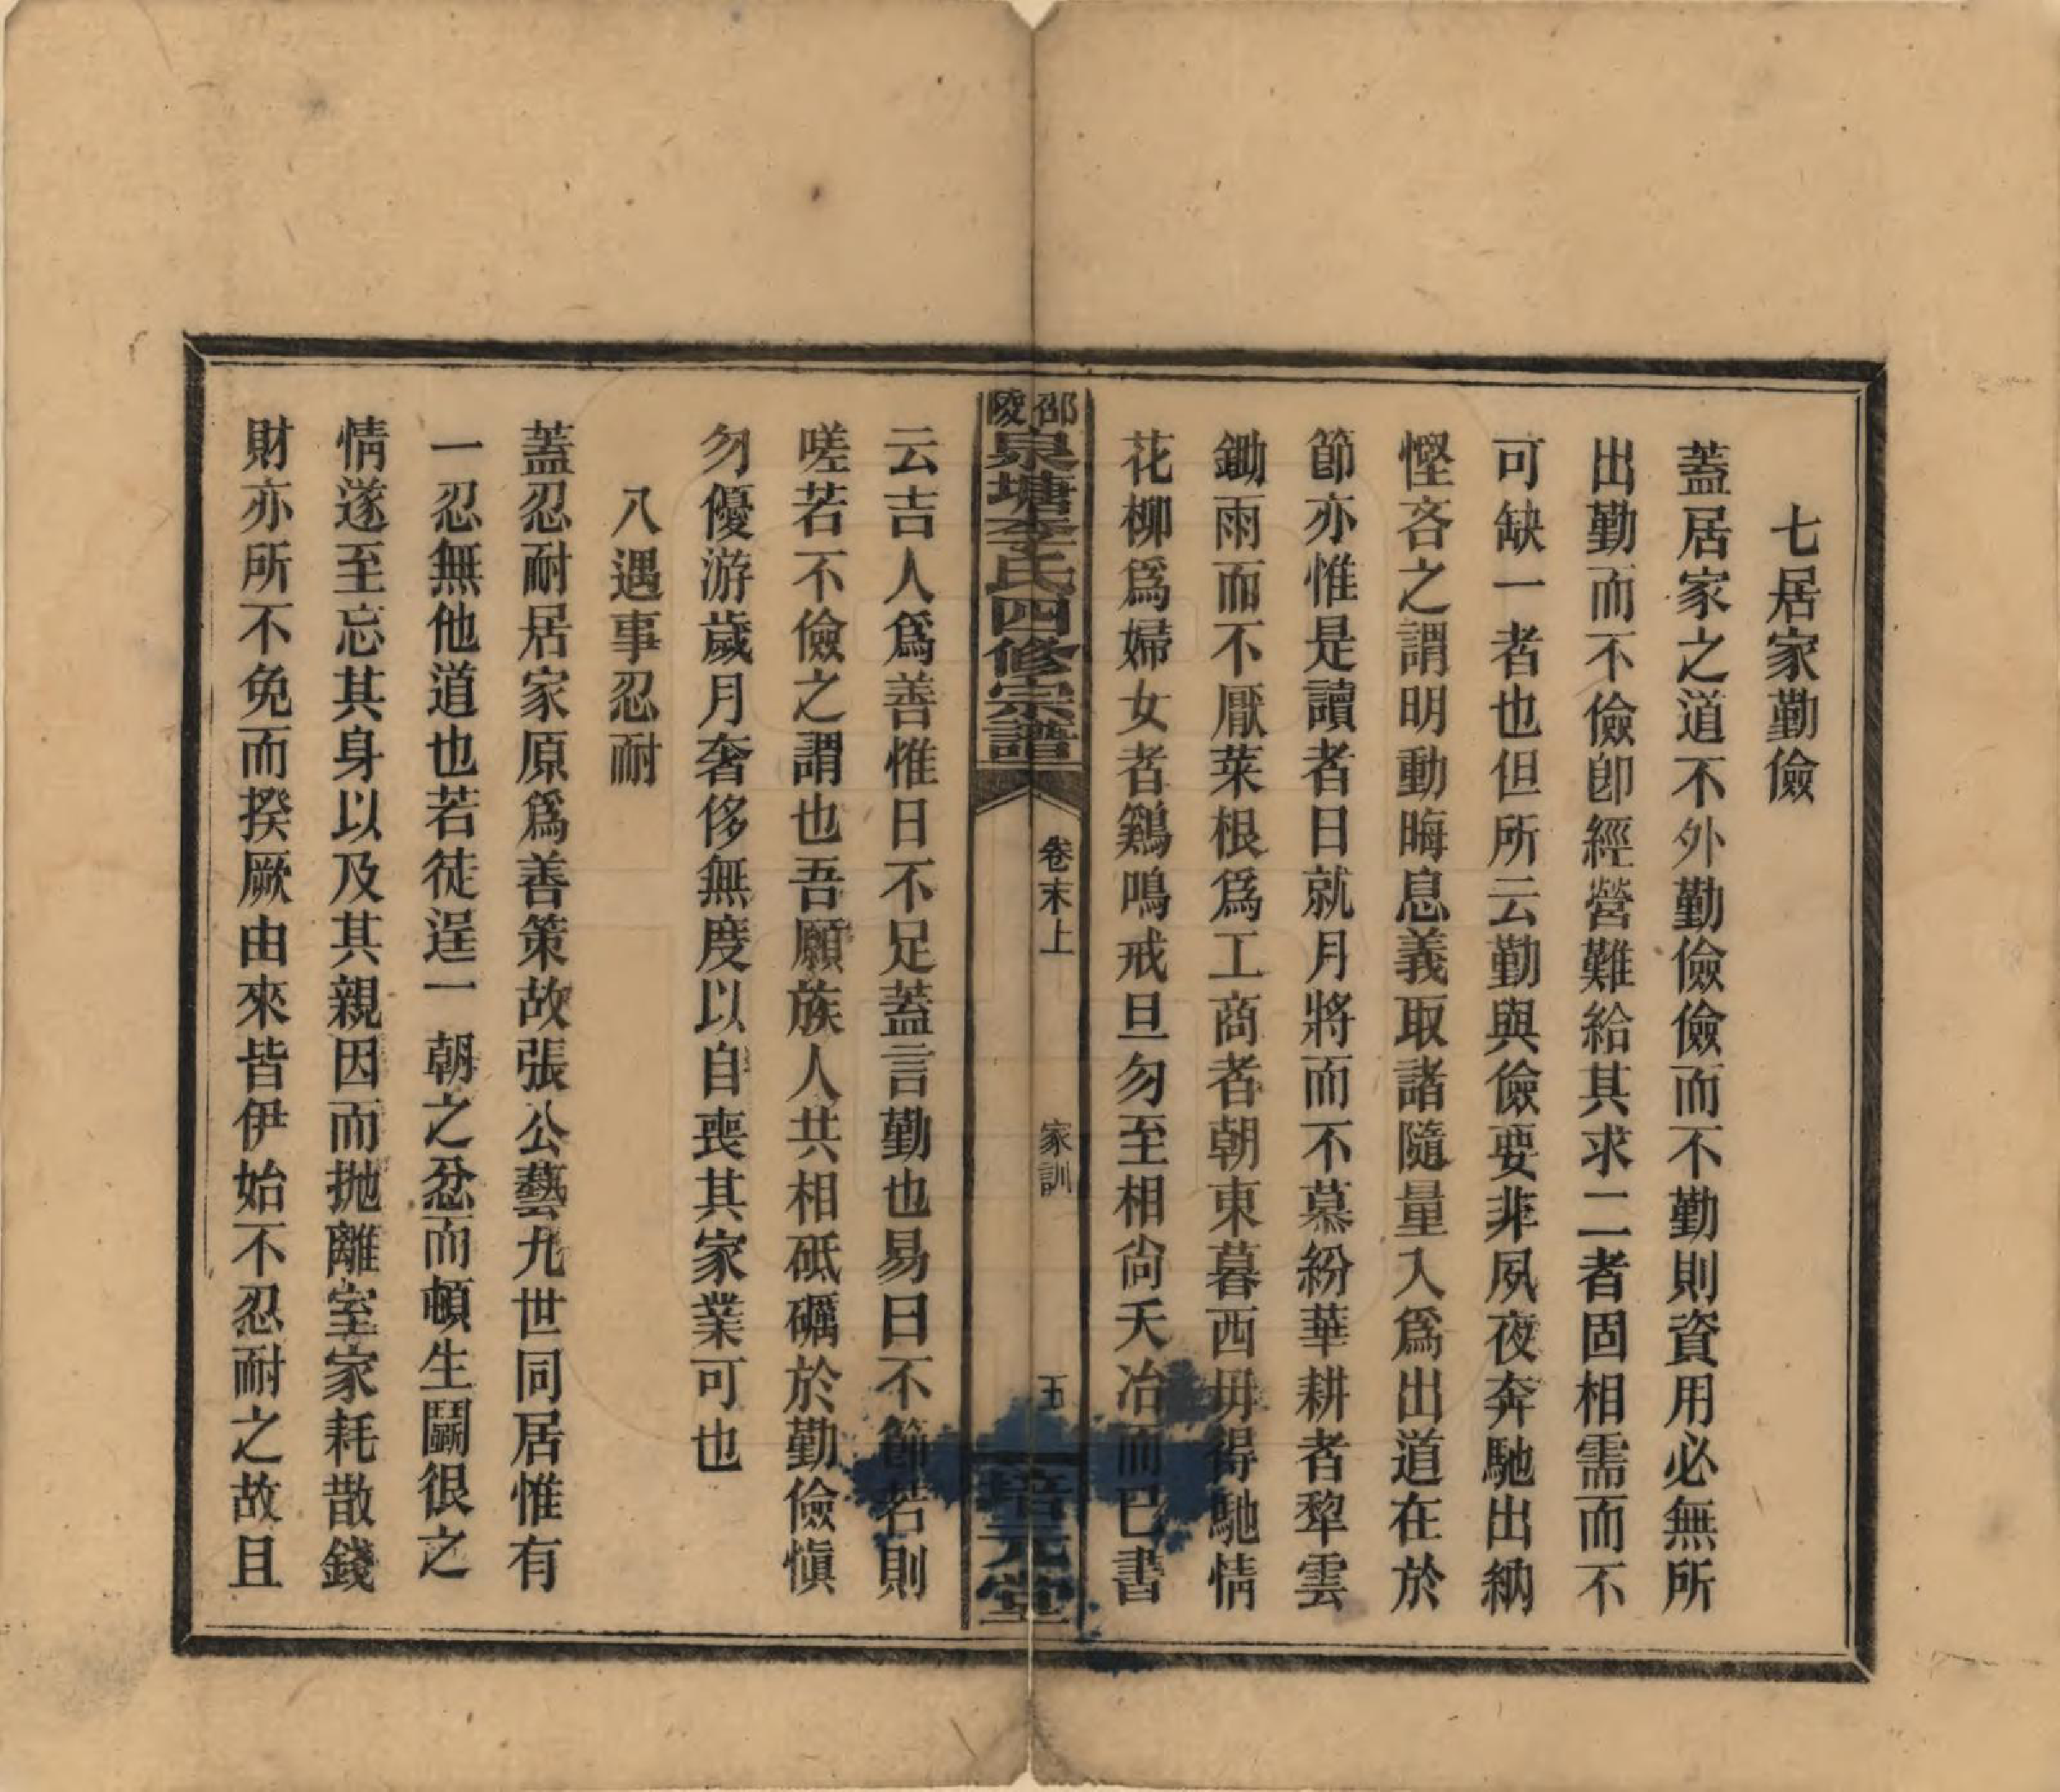 七居家勤儉
蓋居家之道不外勤儉儉而不勤則資用必無所
出勤而不儉卽經營難給其求二者固相需而不
可缺一者也但所云勤與儉要非夙夜奔馳出納
慳吝之謂明動晦息義取諸隨量入爲出道在於
節亦惟是讀者日就月將而不慕紛華耕者犂雲
鋤雨而不厭菜根爲工商者朝東暮西毋得馳情
花柳爲婦女者鷄鳴戒旦勿至相尙夭冶而已書
邵陵泉塘李氏四修宗譜
卷末上
家訓
五
培元堂
云吉人爲善惟日不足蓋言勤也易曰不節若則
嗟若不儉之謂也吾願族人共相砥礪於勤儉愼
勿優游歲月奢侈無度以自喪其家業可也
八遇事忍耐
蓋忍耐居家原爲善策故張公藝九世同居惟有
一忍無他道也若徒逞一朝之忿而頓生鬬很之
情遂至忘其身以及其親因而抛離室家耗散錢
財亦所不免而揆厥由來皆伊始不忍耐之故且